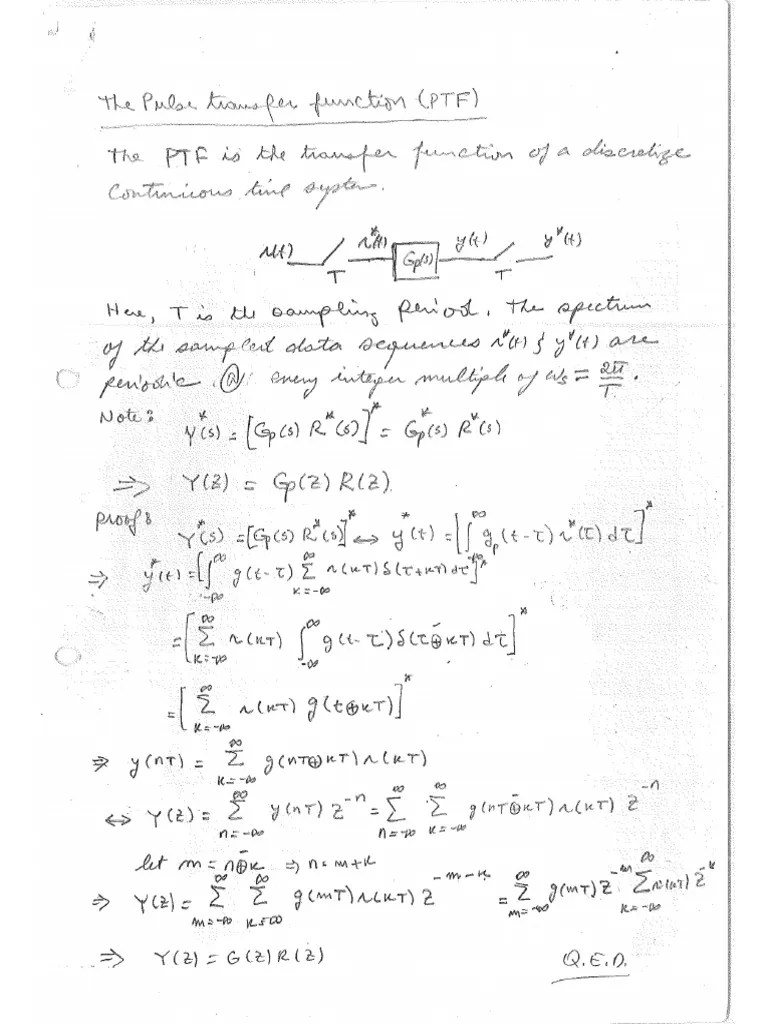 The Pulse transfer function (PTF)
The PTF is the transfer function of a discretize
Continuous time system.
r(t) r*(t) Gp(s) y(t) y*(t)
T T
Here, T is the sampling period. The spectrum
of the sampled data sequences r*(t) & y*(t) are
periodic @ every integer multiple of ωs = 2π/T.
Note: Y*(s) = [Gp(s) R*(s)]* = Gp*(s) R*(s)
⇒ Y(z) = Gp(z) R(z).
Proof: Y*(s) = [Gp(s) R*(s)]* ↔ y*(t) = [∫_{-∞}^{∞} g_p(t-τ) r*(τ) dτ]*
⇒ y*(t) = [∫_{-∞}^{∞} g(t-τ) Σ_{k=-∞}^{∞} r(kT) δ(τ+kT) dτ]*
= [Σ_{k=-∞}^{∞} r(kT) ∫_{-∞}^{∞} g(t-τ) δ(τ-kT) dτ]*
= [Σ_{k=-∞}^{∞} r(kT) g(t-kT)]*
⇒ y(nT) = Σ_{k=-∞}^{∞} g(nT-kT) r(kT)
↔ Y(z) = Σ_{n=-∞}^{∞} y(nT) z^{-n} = Σ_{n=-∞}^{∞} Σ_{k=-∞}^{∞} g(nT-kT) r(kT) z^{-n}
let m = n-k ⇒ n = m+k
⇒ Y(z) = Σ_{m=-∞}^{∞} Σ_{k=-∞}^{∞} g(mT) r(kT) z^{-m-k} = Σ_{m=-∞}^{∞} g(mT) z^{-m} Σ_{k=-∞}^{∞} r(kT) z^{-k}
⇒ Y(z) = G(z) R(z) Q.E.D.